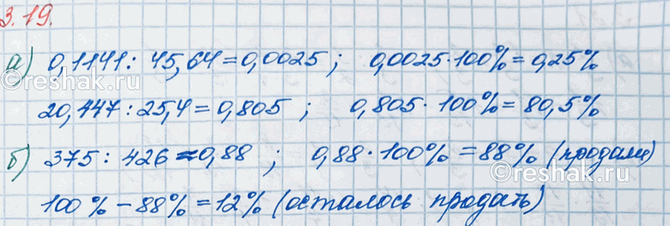 3.19.
а) 0,1141 : 45,64 = 0,0025 ; 0,0025·100% = 0,25%
20,447 : 25,4 = 0,805 ; 0,805·100% = 80,5%
б) 375 : 426 ≈ 0,88 ; 0,88·100% = 88% (продали)
100% – 88% = 12% (осталось продать)